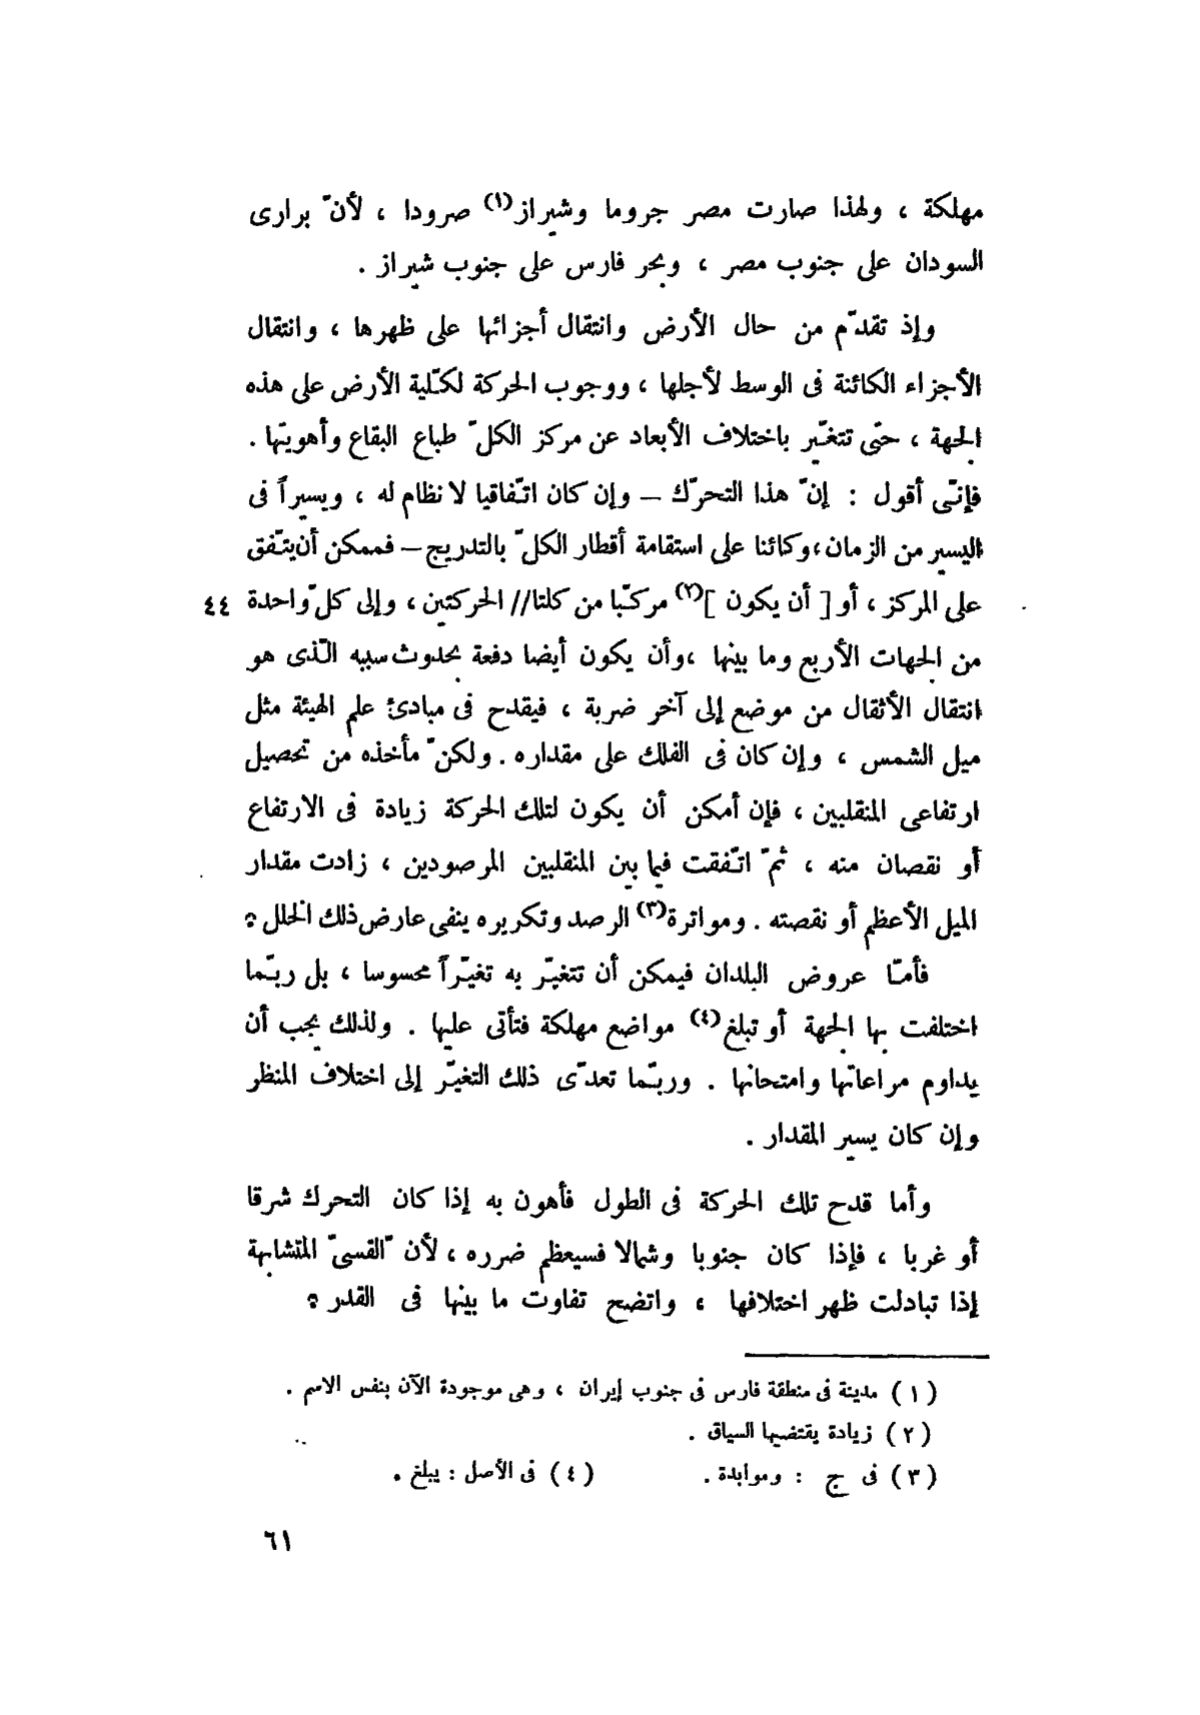 مهلكة ، ولهذا صارت مصر جروما وشيراز(١) صرودا ، لأنّ برارى
السودان على جنوب مصر ، وبحر فارس على جنوب شيراز .
وإذ تقدّم من حال الأرض وانتقال أجزائها على ظهرها ، وانتقال
الأجزاء الكائنة فى الوسط لأجلها ، ووجوب الحركة لكلّية الأرض على هذه
الجهة ، حتّى تتغيّر باختلاف الأبعاد عن مركز الكلّ طباع البقاع وأهويتها .
فإنّى أقول : إنّ هذا التحرّك – وإن كان اتّفاقيا لا نظام له ، ويسيراً فى
اليسير من الزمان ، وكائنا على استقامة أقطار الكلّ بالتدريج – فممكن أن يتّفق
على المركز ، أو [ أن يكون ](٢) مركّبا من كلتا// الحركتين ، وإلى كلّ واحدة ٤٤
من الجهات الأربع وما بينها ، وأن يكون أيضا دفعة بحدوث سببه الّذى هو
انتقال الأثقال من موضع إلى آخر ضربة ، فيقدح فى مبادئ علم الهيئة مثل
ميل الشمس ، وإن كان فى الفلك على مقداره . ولكنّ مأخذه من تحصيل
ارتفاعى المنقلبين ، فإن أمكن أن يكون لتلك الحركة زيادة فى الارتفاع
أو نقصان منه ، ثمّ اتّفقت فيما بين المنقلبين المرصودين ، زادت مقدار
الميل الأعظم أو نقصته . ومواترة(٣) الرصد وتكريره ينفى عارض ذلك الخلل ؟
فأمّا عروض البلدان فيمكن أن تتغيّر به تغيّراً محسوسا ، بل ربّما
اختلفت بها الجهة أو تبلغ(٤) مواضع مهلكة فتأتى عليها . ولذلك يجب أن
يداوم مراعاتها وامتحانها . وربّما تعدّى ذلك التغيّر إلى اختلاف المنظر
وإن كان يسير المقدار .
وأما قدح تلك الحركة فى الطول فأهون به إذا كان التحرك شرقا
أو غربا ، فإذا كان جنوبا وشمالا فسيعظم ضرره ، لأنّ القسىّ المتشابهة
إذا تبادلت ظهر اختلافها ، واتضح تفاوت ما بينها فى القدر ؟
( ١ ) مدينة فى منطقة فارس فى جنوب إيران ، وهى موجودة الآن بنفس الاسم .
( ٢ ) زيادة يقتضيها السياق .
( ٣ ) فى ج : وموابدة . ( ٤ ) فى الأصل : يبلغ .
٦١